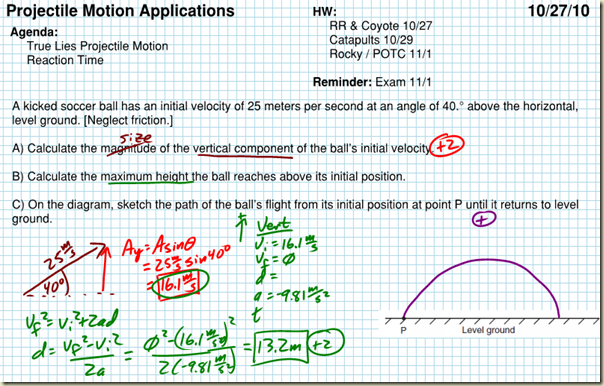 Projectile Motion Applications
HW:
10/27/10
RR & Coyote 10/27
Catapults 10/29
Rocky / POTC 11/1
Agenda:
True Lies Projectile Motion
Reaction Time
Reminder: Exam 11/1
A kicked soccer ball has an initial velocity of 25 meters per second at an angle of 40.° above the horizontal,
level ground. [Neglect friction.]
size
A) Calculate the magnitude of the vertical component of the ball's initial velocity. +2
B) Calculate the maximum height the ball reaches above its initial position.
C) On the diagram, sketch the path of the ball's flight from its initial position at point P until it returns to level
ground.
+
25 m/s
40°
Ay = A sin θ
= 25 m/s sin 40°
= 16.1 m/s
Vert
vi = 16.1 m/s
vf = Ø
d =
a = -9.81 m/s²
t
vf² = vi² + 2ad
d = (vf² - vi²) / 2a = (Ø² - (16.1 m/s)²) / 2(-9.81 m/s²) = 13.2 m +2
P
Level ground